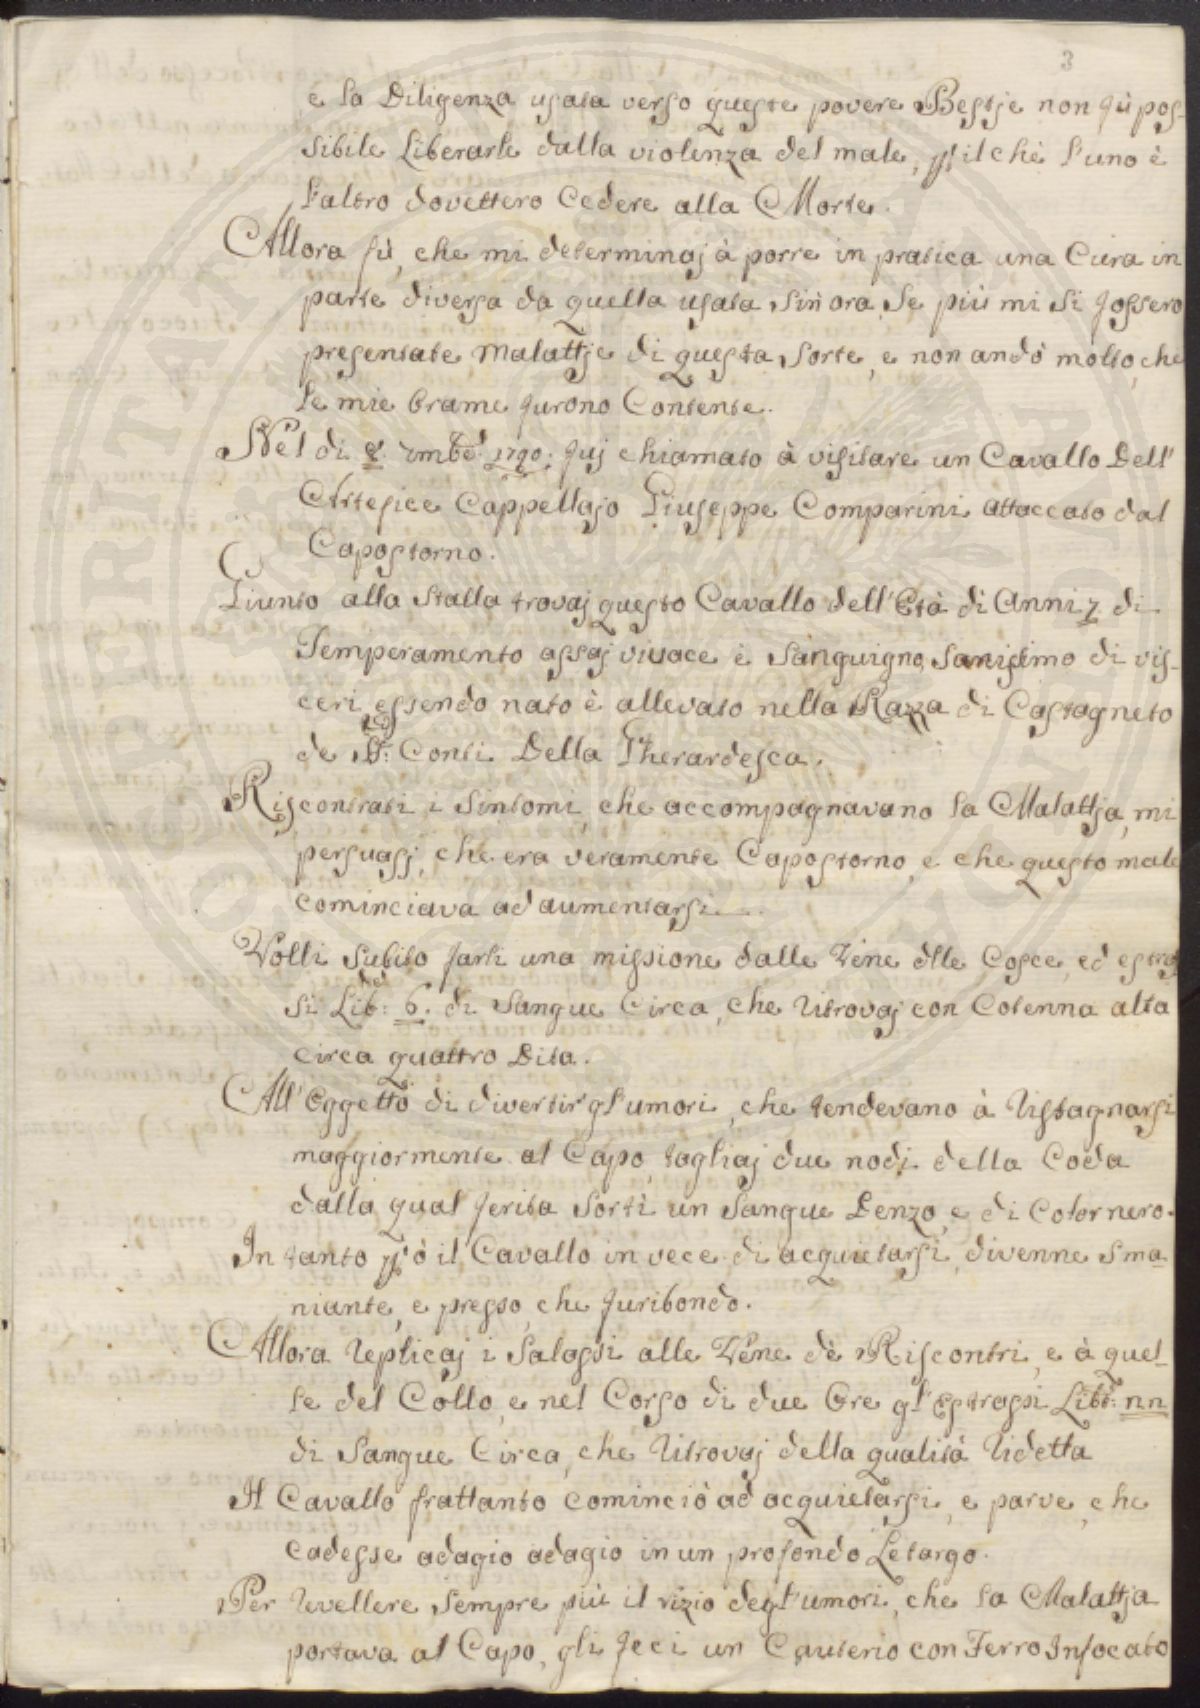 3
e la Diligenza usata verso queste povere Bestje non fù pos-
sibile Liberarle dalla violenza del male, p il chè l'uno è
l'altro dovettero Cedere alla Morte.
Allora fù, che mi determinaj à porre in pratica una Cura in
parte diversa da quella usata sin'ora, se più mi si fossero
presentate Malattje di questa sorte, e non andò molto, che
le mie brame furono Contente.
Nel di 8. 7mbre 1790. fuj chiamato à visitare un Cavallo Dell'
Artefice Cappellajo Giuseppe Comparini attaccato dal
Capostorno.
Giunto alla Stalla trovaj questo Cavallo dell'Età di Anni 7 di
Temperamento assaj vivace è Sanguigno, Sanissimo di vis-
ceri essendo nato è allevato nella Razza di Castagneto
de SS:ri Conti Della Gherardesca.
Riscontrati i Sintomi, che accompagnavano la Malattja, mi
persuasj, che era veramente Capostorno, e che questo male
cominciava ad aumentarsi.
Volli subito farli una missione dalle Vene dlle Cosce, ed estras
si Lib: 6. di Sangue Circa, che ritrovaj con Cotenna alta
circa quattro Dita.
All'Oggetto di divertir gl'umori, che tendevano à ristagnarsi
maggiormente al Capo, tagliaj due nodi della Coda
dalla qual ferita Sortì un Sangue Denzo, e di Color nero.
In tanto pò il Cavallo in vece di acquietarsi, divenne Sma
niante, e presso, che furibondo.
Allora replicaj i Salassi alle Vene dè Riscontri, e à quel-
le del Collo, e nel Corso di due Ore gl'Estrassi Libb: nn
di Sangue Circa, che ritrovaj della qualità ridetta
Il Cavallo frattanto cominciò ad acquietarsi, e parve, che
cadesse adagio adagio in un profondo Letargo.
Per revellere sempre più il vizio degl'umori, che la Malattja
portava al Capo, gli feci un Cauterio con Ferro Infocato